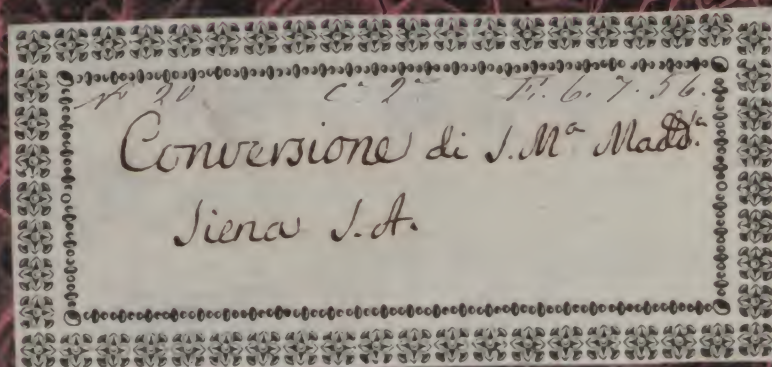 Nº 20 Cª 2ª Fi. 6. 7. 56.
Conversione di S. Mª Madd.ª
Siena S. A.